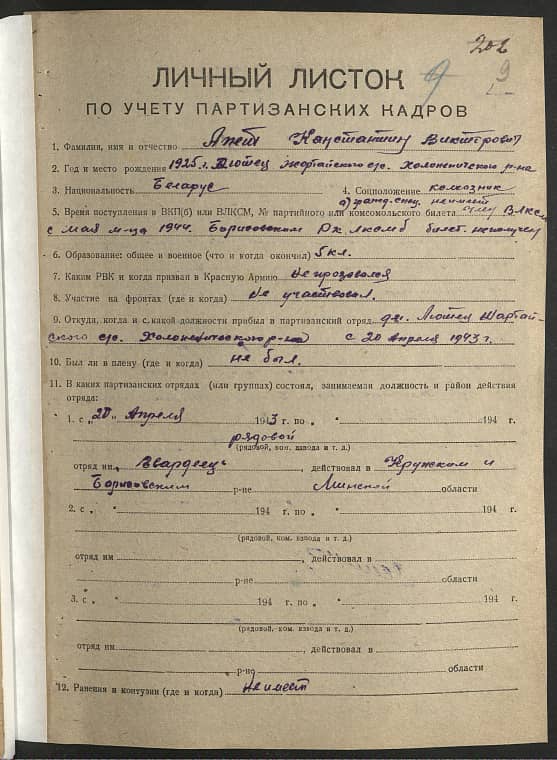 202
9
ЛИЧНЫЙ ЛИСТОК
ПО УЧЕТУ ПАРТИЗАНСКИХ КАДРОВ
1. Фамилия, имя и отчество Константин Викторович
2. Год и место рождения 1925 г. с/с. Холопеничского р-на
3. Национальность Беларус 4. Соцположение колхозник
б) гражд. спец. неимеет
5. Время поступления в ВКП(б) или ВЛКСМ, № партийного или комсомольского билета член ВЛКСМ
с мая м-ца 1944. Борисовским Рк лксмб билет неполучен
6. Образование: общее и военное (что и когда окончил) 5 кл.
7. Каким РВК и когда призван в Красную Армию Не призовался
8. Участие на фронтах (где и когда) Не участвовал.
9. Откуда, когда и с какой должности прибыл в партизанский отряд дер.
ского с/с. Холопеничского р-на с 20 апреля 1943 г.
10. Был ли в плену (где и когда) не был.
11. В каких партизанских отрядах (или группах) состоял, занимаемая должность и район действия
отряда:
1. с „20“ Апреля 1943 г. по „ “ 194 г.
рядовой
(рядовой, ком. взвода и т. д.)
отряд им. Гвардеец, действовал в Крупским и
Борисовским р-не Минской области
2. с „ “ 194 г. по „ “ 194 г.
(рядовой, ком. взвода и т. д.)
отряд им , действовал в
р-не области
3. с „ “ 194 г. по „ “ 194 г.
(рядовой, ком. взвода и т. д.)
отряд им , действовал в
р-не области
12. Ранения и контузии (где и когда) неимеет